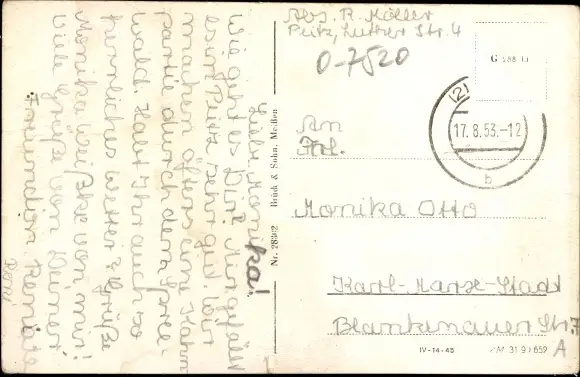 Liebe Monika!
Wie geht es Dir? Mir gefällt
es in Peitz sehr gut. Wir
machen öfters eine Kahn
partie durch den Spree-
wald. Habt Ihr auch so
herrliches Wetter? Grüße
Monika von mir!
Viele Grüße von Deiner
Freundin Renate
Abs. R. Köller
Peitz, Luther Str. 4
0-7520
17.8.53.-12
(2)
b
An
Frl.
Monika Otto
Karl-Marx-Stadt
Blankenauer Str. 7
A
Nr. 28302 Brück & Sohn, Meißen
IV-14-45